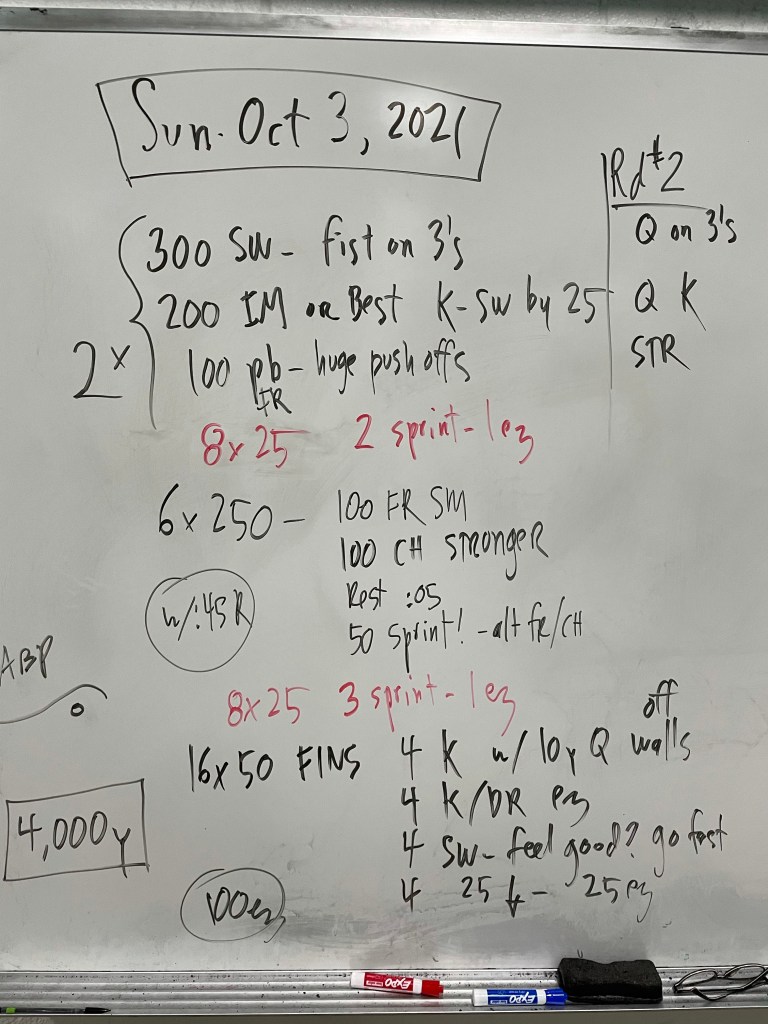 Sun. Oct 3, 2021
2x
300 SW - fist on 3's
200 IM or Best K-SW by 25
100 pb - huge push offs
FR
Rd #2
Q on 3's
Q K
STR
8x25 2 sprint - 1 ez
6x250 - 100 FR SM
100 CH STRONGER
Rest :05
50 sprint! - alt fr/CH
w/:45 R
ABP
8x25 3 sprint - 1 ez
16x50 FINS 4 K w/ 10y Q off walls
4 K/DR ez
4 SW - feel good? go fast
4 25 f - 25 ez
4,000y
100 ez
EXPO
EXPO